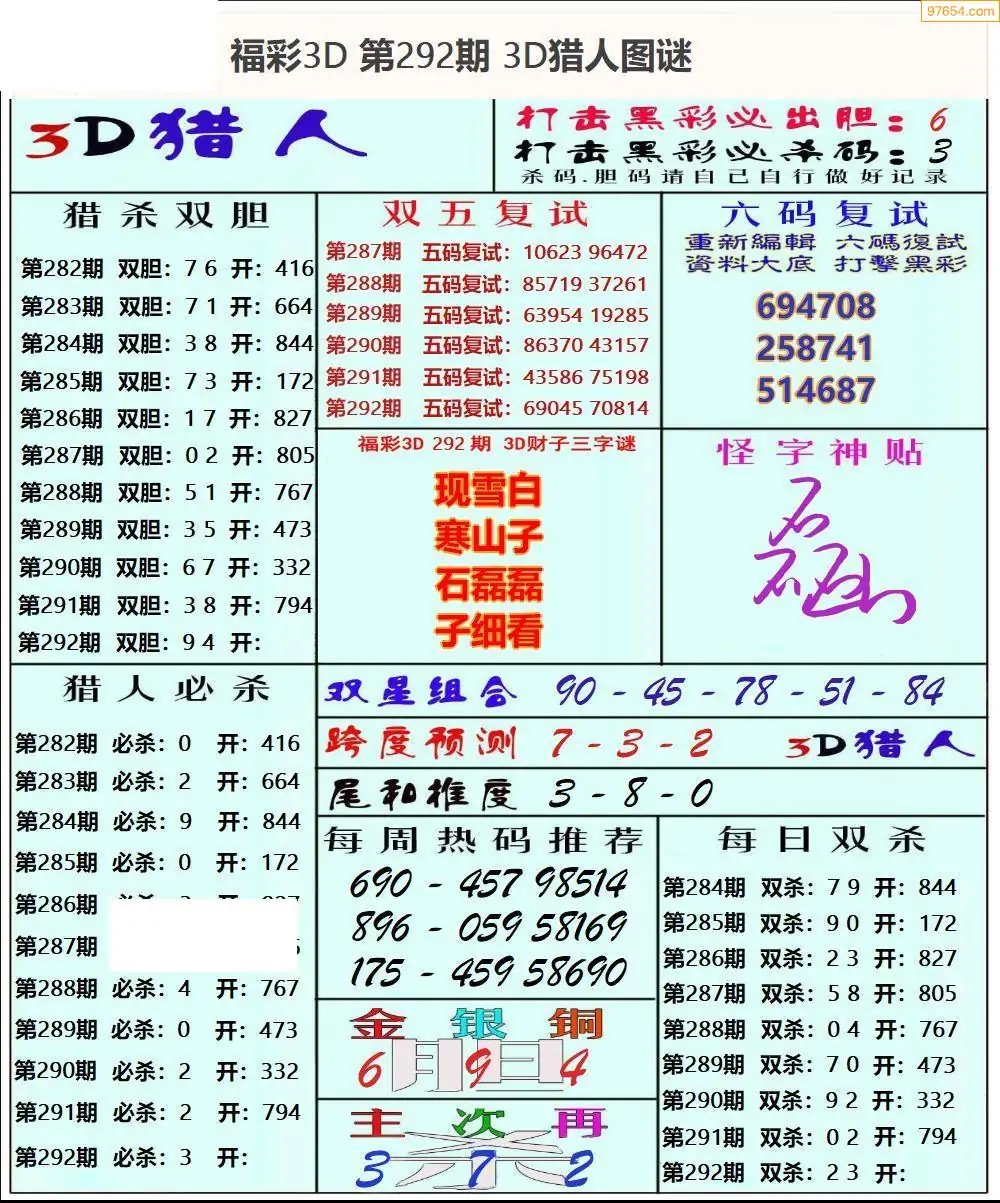 97654.com
福彩3D 第292期 3D猎人图谜
3D猎人
打击黑彩必出胆：6
打击黑彩必杀码：3
杀码.胆码请自己自行做好记录
猎杀双胆
第282期 双胆：7 6 开：416
第283期 双胆：7 1 开：664
第284期 双胆：3 8 开：844
第285期 双胆：7 3 开：172
第286期 双胆：1 7 开：827
第287期 双胆：0 2 开：805
第288期 双胆：5 1 开：767
第289期 双胆：3 5 开：473
第290期 双胆：6 7 开：332
第291期 双胆：3 8 开：794
第292期 双胆：9 4 开：
双五复试
第287期 五码复试：10623 96472
第288期 五码复试：85719 37261
第289期 五码复试：63954 19285
第290期 五码复试：86370 43157
第291期 五码复试：43586 75198
第292期 五码复试：69045 70814
六码复试
重新編輯 六碼復試
資料大底 打擊黑彩
694708
258741
514687
福彩3D 292 期 3D财子三字谜
现雪白
寒山子
石磊磊
子细看
怪字神贴
猎人必杀
第282期 必杀：0 开：416
第283期 必杀：2 开：664
第284期 必杀：9 开：844
第285期 必杀：0 开：172
第286期
第287期
第288期 必杀：4 开：767
第289期 必杀：0 开：473
第290期 必杀：2 开：332
第291期 必杀：2 开：794
第292期 必杀：3 开：
双星组合 90 - 45 - 78 - 51 - 84
跨度预测 7 - 3 - 2 3D猎人
尾和推度 3 - 8 - 0
每周热码推荐
690 - 457 98514
896 - 059 58169
175 - 459 58690
金 银 铜
胆
6 9 4
主 次 再
杀
3 7 2
每日双杀
第284期 双杀：7 9 开：844
第285期 双杀：9 0 开：172
第286期 双杀：2 3 开：827
第287期 双杀：5 8 开：805
第288期 双杀：0 4 开：767
第289期 双杀：7 0 开：473
第290期 双杀：9 2 开：332
第291期 双杀：0 2 开：794
第292期 双杀：2 3 开：